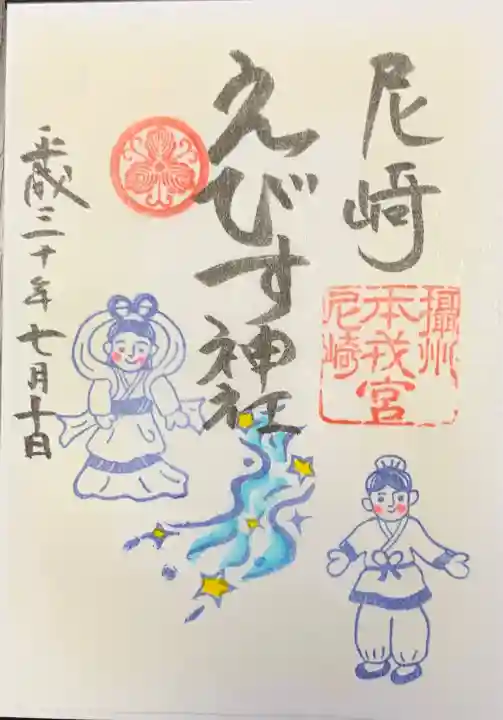 尼崎
えびす神社
攝州
本戎宮
尼崎
平成三十年七月十日